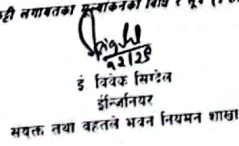 ट्टी लगायतका मूल्याकनका विधि र
१२/२९
ई विवेक सिग्देल
ईन्जिनियर
सयुक्त तथा वहतले भवन नियमन शाखा